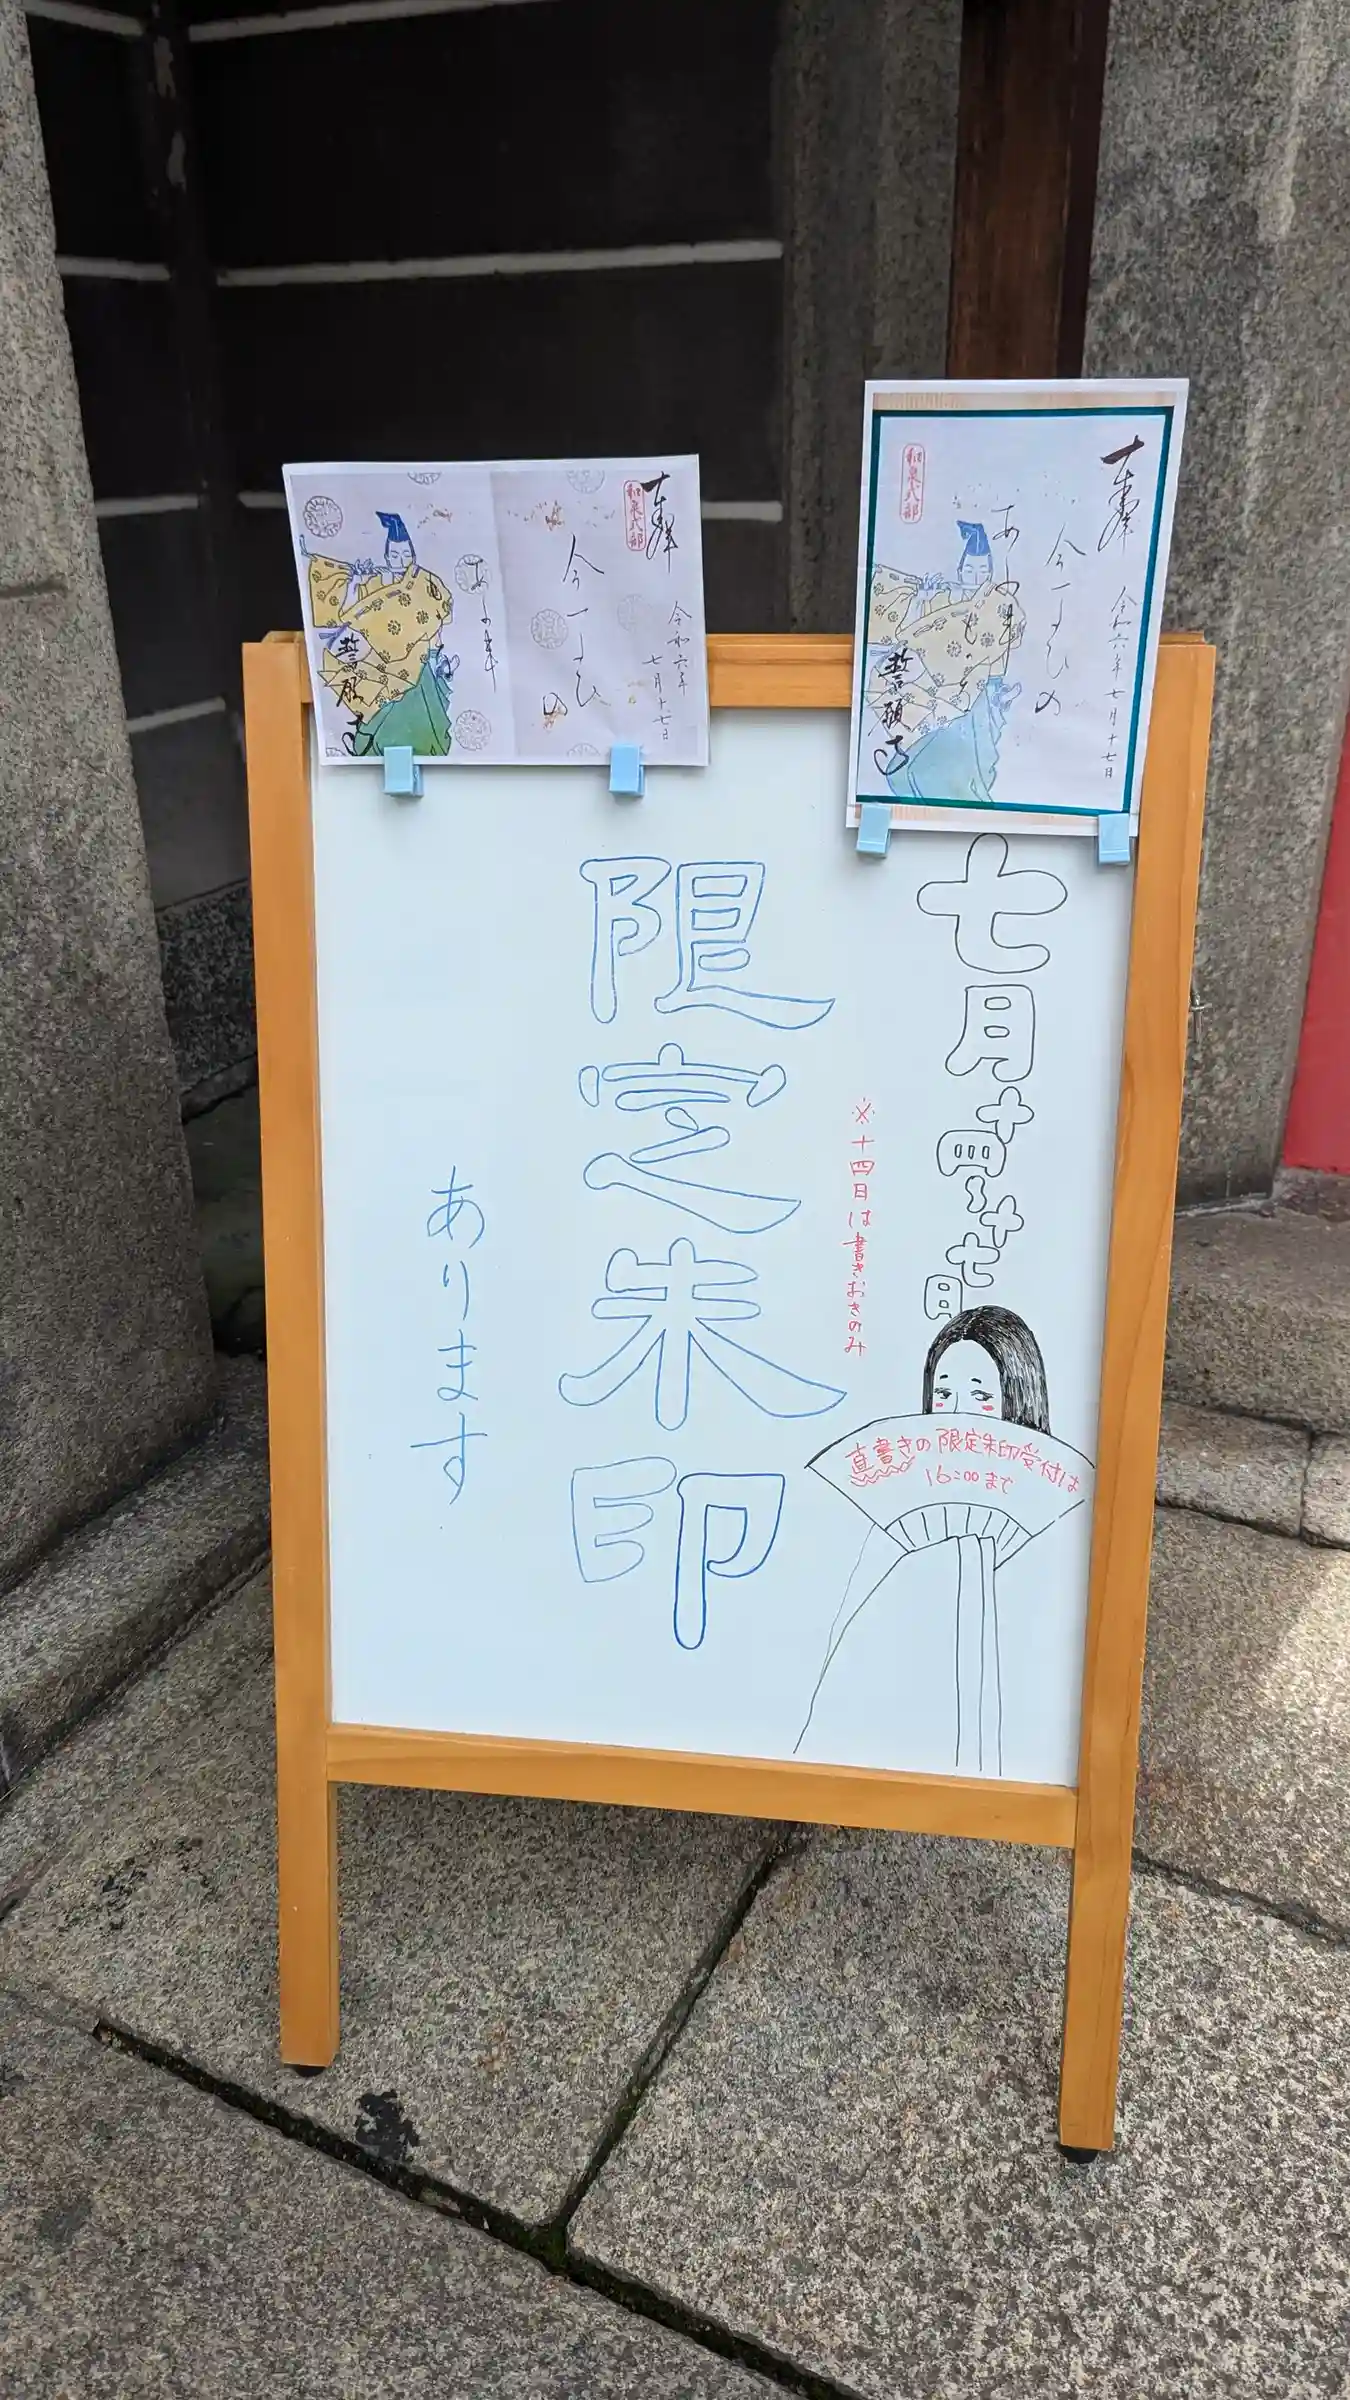 奉拝
和泉式部
令和六年
七月十七日
今一よひの
誓願寺
奉拝
令和六年七月十七日
今一よひの
和泉式部
誓願寺
七月十四〜十七日
※十四日は書きおきのみ
限定朱印
あります
直書きの限定朱印受付は
16:00まで